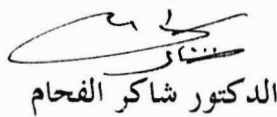 الدكتور شاكر الفحام